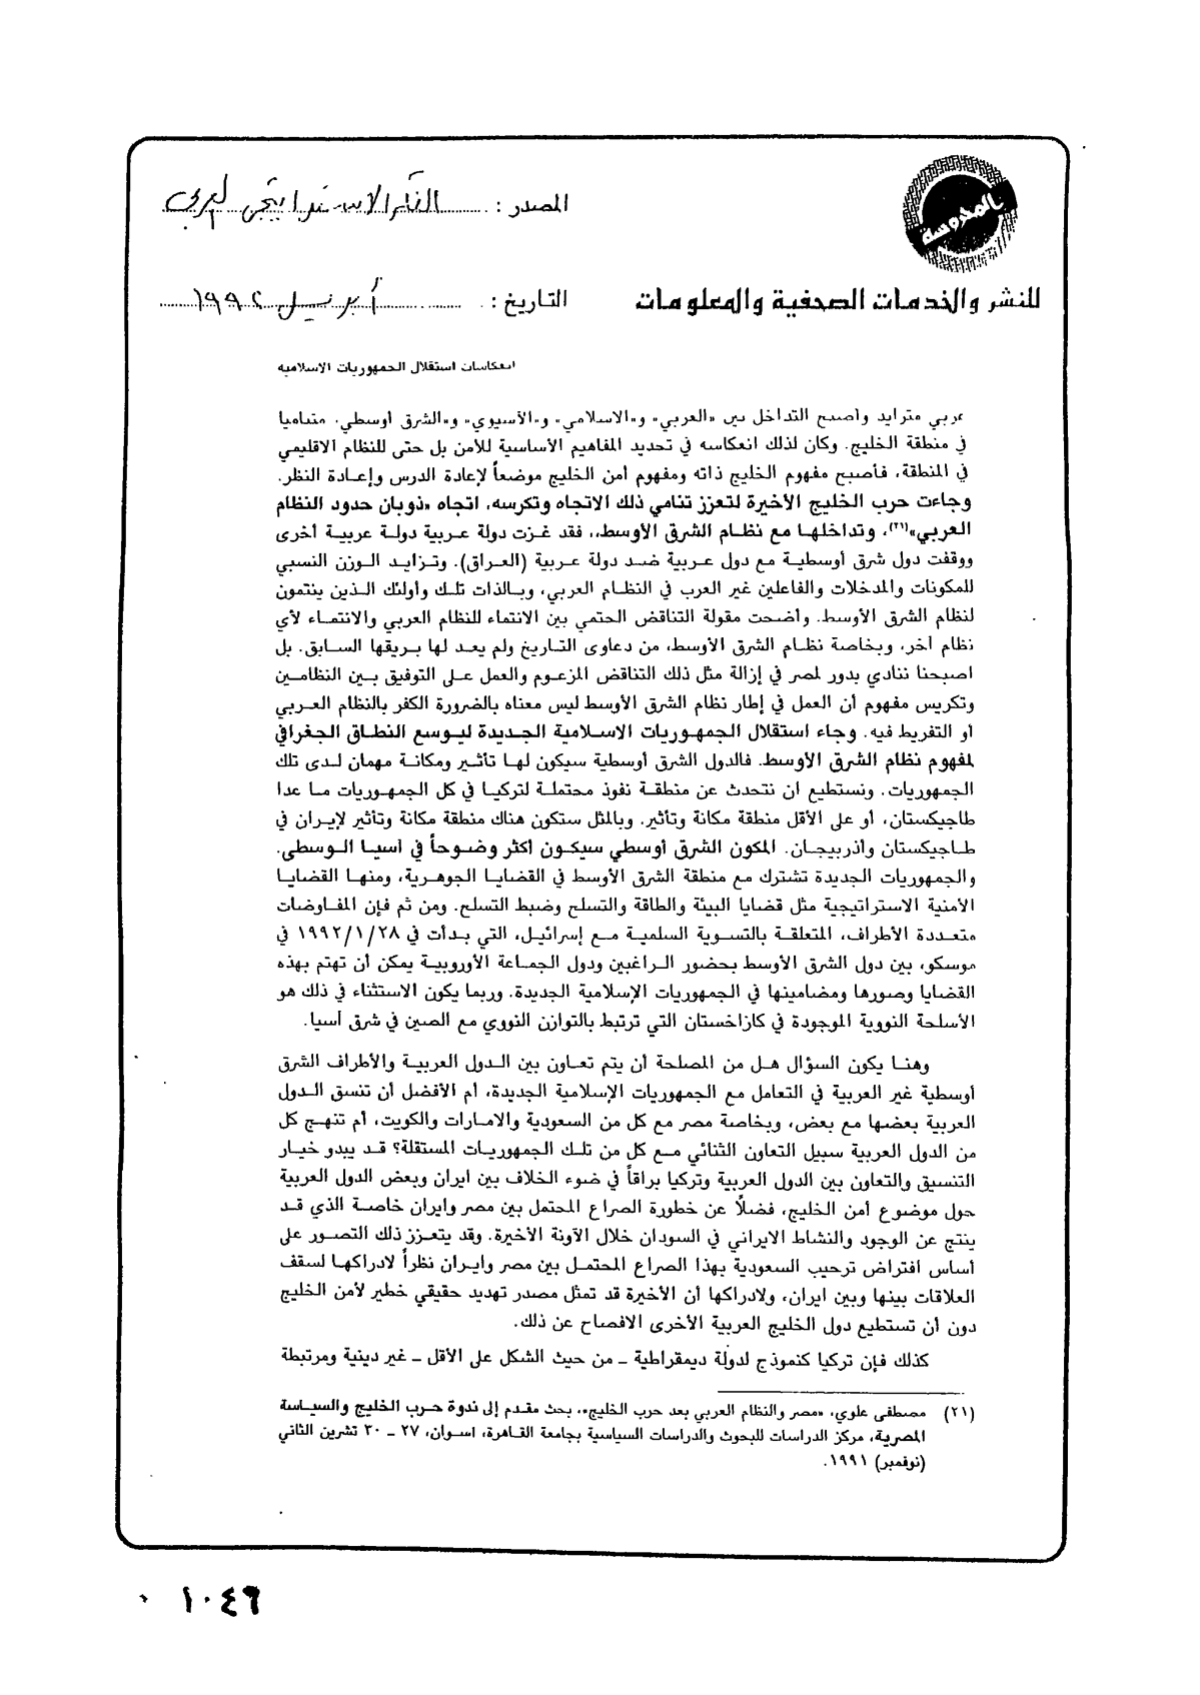 المصدر : الفكر الاستراتيجي العربي
بالمحروسة
للنشر والخدمات الصحفية والمعلومات
التاريخ : أبريل ١٩٩٢
انعكاسات استقلال الجمهوريات الاسلامية
عربي متزايد وأصبح التداخل بين «العربي» و«الاسلامي» و«الآسيوي» و«الشرق أوسطي» متناميا
في منطقة الخليج. وكان لذلك انعكاسه في تحديد المفاهيم الأساسية للأمن بل حتى للنظام الاقليمي
في المنطقة، فأصبح مفهوم الخليج ذاته ومفهوم أمن الخليج موضعاً لإعادة الدرس وإعادة النظر.
وجاءت حرب الخليج الأخيرة لتعزز تنامي ذلك الاتجاه وتكرسه، اتجاه «ذوبان حدود النظام
العربي»(٢١)، وتداخلها مع نظام الشرق الأوسط،. فقد غزت دولة عربية دولة عربية أخرى
ووقفت دول شرق أوسطية مع دول عربية ضد دولة عربية (العراق). وتزايد الوزن النسبي
للمكونات والمدخلات والفاعلين غير العرب في النظام العربي، وبالذات تلك وأولئك الذين ينتمون
لنظام الشرق الأوسط. وأضحت مقولة التناقض الحتمي بين الانتماء للنظام العربي والانتماء لأي
نظام آخر، وبخاصة نظام الشرق الأوسط، من دعاوى التاريخ ولم يعد لها بريقها السابق. بل
اصبحنا ننادي بدور لمصر في إزالة مثل ذلك التناقض المزعوم والعمل على التوفيق بين النظامين
وتكريس مفهوم أن العمل في إطار نظام الشرق الأوسط ليس معناه بالضرورة الكفر بالنظام العربي
أو التفريط فيه. وجاء استقلال الجمهوريات الاسلامية الجديدة ليوسع النطاق الجغرافي
لمفهوم نظام الشرق الأوسط. فالدول الشرق أوسطية سيكون لها تأثير ومكانة مهمان لدى تلك
الجمهوريات. ونستطيع ان نتحدث عن منطقة نفوذ محتملة لتركيا في كل الجمهوريات ما عدا
طاجيكستان، أو على الأقل منطقة مكانة وتأثير. وبالمثل ستكون هناك منطقة مكانة وتأثير لإيران في
طاجيكستان وأذربيجان. المكون الشرق أوسطي سيكون أكثر وضوحاً في آسيا الوسطى.
والجمهوريات الجديدة تشترك مع منطقة الشرق الأوسط في القضايا الجوهرية، ومنها القضايا
الأمنية الاستراتيجية مثل قضايا البيئة والطاقة والتسلح وضبط التسلح. ومن ثم فإن المفاوضات
متعددة الأطراف، المتعلقة بالتسوية السلمية مع إسرائيل، التي بدأت في ١٩٩٢/١/٢٨ في
موسكو، بين دول الشرق الأوسط بحضور الراغبين ودول الجماعة الأوروبية يمكن أن تهتم بهذه
القضايا وصورها ومضامينها في الجمهوريات الإسلامية الجديدة. وربما يكون الاستثناء في ذلك هو
الأسلحة النووية الموجودة في كازاخستان التي ترتبط بالتوازن النووي مع الصين في شرق آسيا.
وهنا يكون السؤال هل من المصلحة أن يتم تعاون بين الدول العربية والأطراف الشرق
أوسطية غير العربية في التعامل مع الجمهوريات الإسلامية الجديدة، أم الأفضل أن تنسق الدول
العربية بعضها مع بعض، وبخاصة مصر مع كل من السعودية والامارات والكويت، أم تنهج كل
من الدول العربية سبيل التعاون الثنائي مع كل من تلك الجمهوريات المستقلة؟ قد يبدو خيار
التنسيق والتعاون بين الدول العربية وتركيا براقاً في ضوء الخلاف بين ايران وبعض الدول العربية
حول موضوع أمن الخليج، فضلاً عن خطورة الصراع المحتمل بين مصر وايران خاصة الذي قد
ينتج عن الوجود والنشاط الايراني في السودان خلال الآونة الأخيرة. وقد يتعزز ذلك التصور على
أساس افتراض ترحيب السعودية بهذا الصراع المحتمل بين مصر وايران نظراً لادراكها لسقف
العلاقات بينها وبين ايران، ولادراكها أن الأخيرة قد تمثل مصدر تهديد حقيقي خطير لأمن الخليج
دون أن تستطيع دول الخليج العربية الأخرى الافصاح عن ذلك.
كذلك فإن تركيا كنموذج لدولة ديمقراطية ـ من حيث الشكل على الأقل ـ غير دينية ومرتبطة
(٢١) مصطفى علوي، «مصر والنظام العربي بعد حرب الخليج»، بحث مقدم إلى ندوة حرب الخليج والسياسة
المصرية، مركز الدراسات للبحوث والدراسات السياسية بجامعة القاهرة، اسوان، ٢٧ ـ ٣٠ تشرين الثاني
(نوفمبر) ١٩٩١.
١٠٤٦